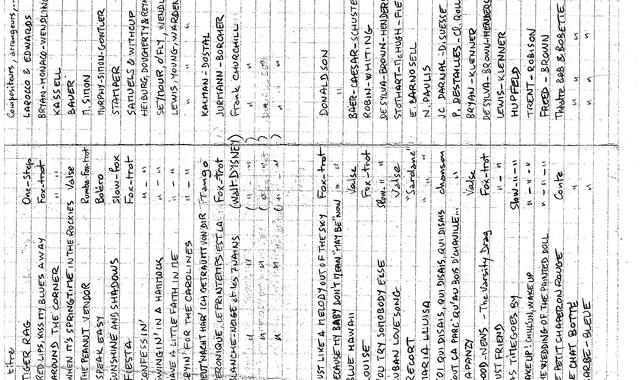 titre Compositeurs, arrangeurs,...
TIGER RAG One-Step LAROCCO & EDWARDS
RED LIPS KISS MY BLUES AWAY Fox-trot BRYAN-MONACO-WENDLING
AROUND THE CORNER " KASSELL
WHEN IT'S SPRINGTIME IN THE ROCKIES Valse BAUER
THE PEANUT VENDOR Rumba-Foxtrot M. SIMON
SPEAK EASY Bolero MURPHY-SIMON-GONTLER
SUNSHINE AND SHADOWS Slow-Fox STAMPER
FIESTA Fox-trot SAMUELS & WITHCUP
CONFESSIN' " - " HEIBURG, DOUGHERTY & REYN
SWINGIN' IN A HAMMOCK " - " SEYMOUR, O'FLY, WENDL
HAVE A LITTLE FAITH IN ME " - " LEWIS, YOUNG, WARREN
CRYIN' FOR THE CAROLINES " - " "
HEUT' NACHT HAB' ICH GETRÄUMT VON DIR Tango KALMAN - DOSTAL
VERONIQUE, LE PRINTEMPS EST LA Fox-Trot JURMANN - BORCHER
BLANCHE-NEIGE et les 7 NAINS (WALT DYSNEY) Frank CHURCHILL
" " "
" " "
" " "
JUST LIKE A MELODY OUT OF THE SKY Fox-trot DONALDSON
BECAUSE MY BABY DON'T MEAN "MAY BE" NOW " "
BLUE HAWAII Valse BAER-CAESAR-SCHUSTE
LOUISE Fox-trot ROBIN-WHITING
YOU TRY SOMBODY ELSE Slow-" DE SYLVA-BROWN-HENDERS
CUBAN LOVESONG Valse STOTHART-Mc HUGH-FIE
RECORT "Sardane" E. BARNOSELL
MARIA LLUISA " N. PAULIS
TOI QUI DISAIS, QUI DISAIS, QUI DISAIS chanson JC DARNAL-D. SUESSE
TOUT ÇA PARC' QU'AU BOIS D'CHAVILLE... " P. DESTALLES-Cl. ROLL
Valse BRYAN-KLENNER
GOOD-NEWS - The Varsity Drag Fox-trot DE SYLVA-BROWN-HENDERSO
JUST FRIEND " - " LEWIS-KLENNER
AS TIME GOES BY Slow-"-" HUPFELD
WAKE UP! CHILLUN, WAKE UP " - " - " TREAT-ROBISON
THE WEDDING OF THE PAINTED DOLL " - " FREED-BROWN
LE PETIT CHAPERON ROUGE Conte Théatre BOB & BOBETTE
LE CHAT BOTTE " " " "
BARBE-BLEUE " " " "